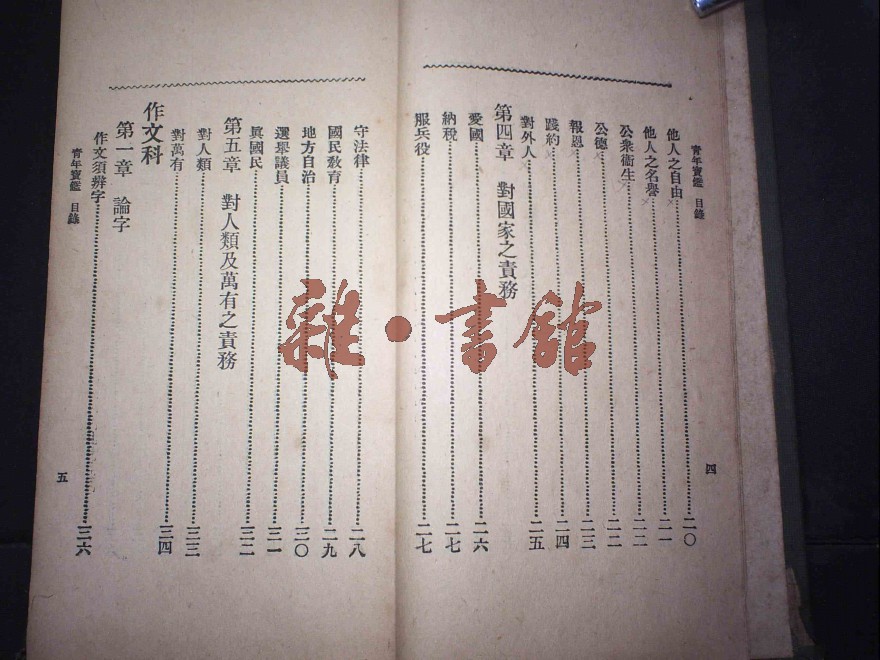 青年寶鑑 目錄
四
他人之自由 二〇
他人之名譽 二一
公衆衞生 二二
公德 二二
報恩 二三
踐約 二四
對外人 二五
第四章 對國家之責務
愛國 二六
納稅 二七
服兵役 二七
守法律 二八
國民敎育 二九
地方自治 三〇
選舉議員 三一
眞國民 三二
第五章 對人類及萬有之責務
對人類 三三
對萬有 三四
作文科
第一章 論字
作文須辨字 三六
青年寶鑑 目錄
五
雜·書館